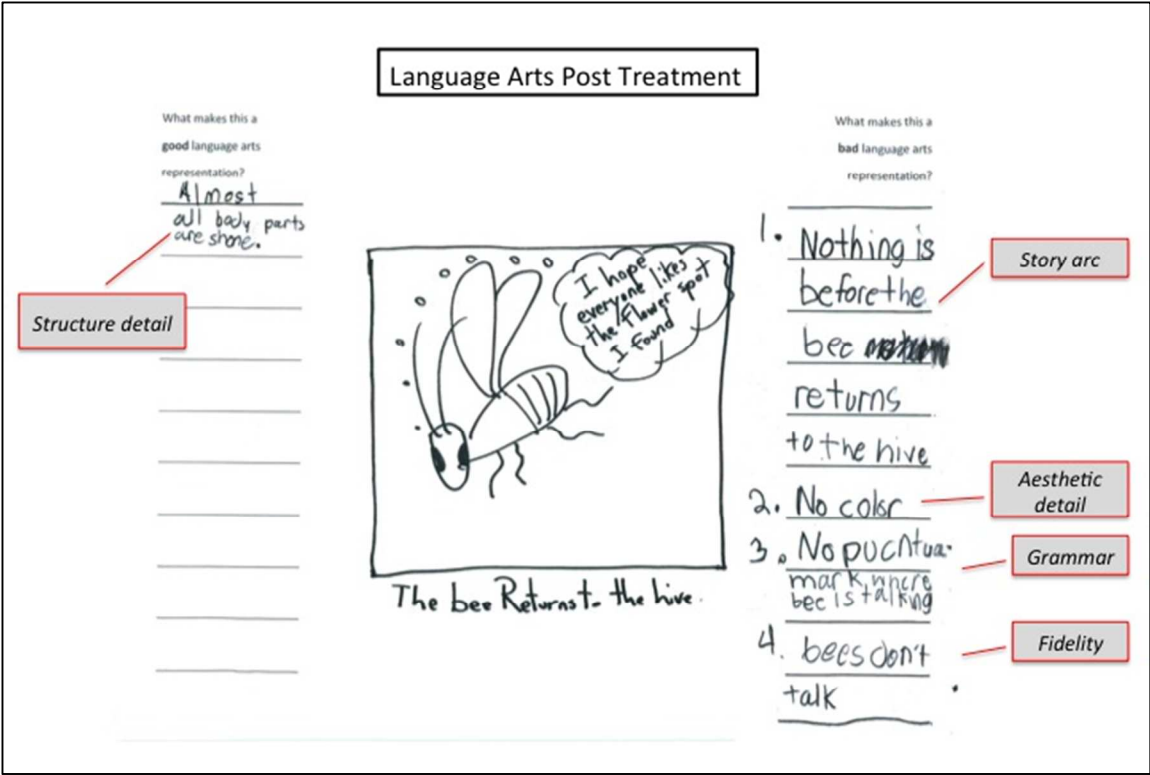 Language Arts Post Treatment
What makes this a
good language arts
representation?
Almost
all body parts
are shone.
Structure detail
I hope
everyone likes
the flower spot
I found
The bee Returns t- the hive.
What makes this a
bad language arts
representation?
1. Nothing is
before the
bee
returns
to the hive
2. No color
3. No pucntua-
mark where
bee is talking
4. bees don't
talk
Story arc
Aesthetic
detail
Grammar
Fidelity